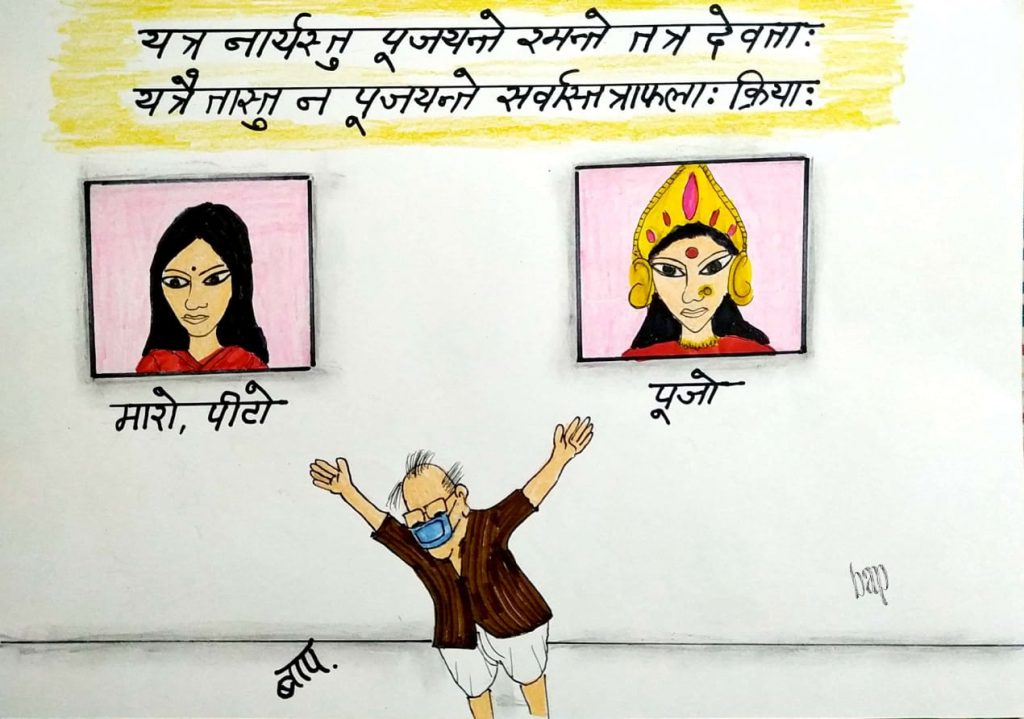 यत्र नार्यस्तु पूजयन्ते रमन्ते तत्र देवताः
यत्रैतास्तु न पूजयन्ते सर्वास्तत्राफलाः क्रियाः
मारो, पीटो
पूजो
बाप.
baap